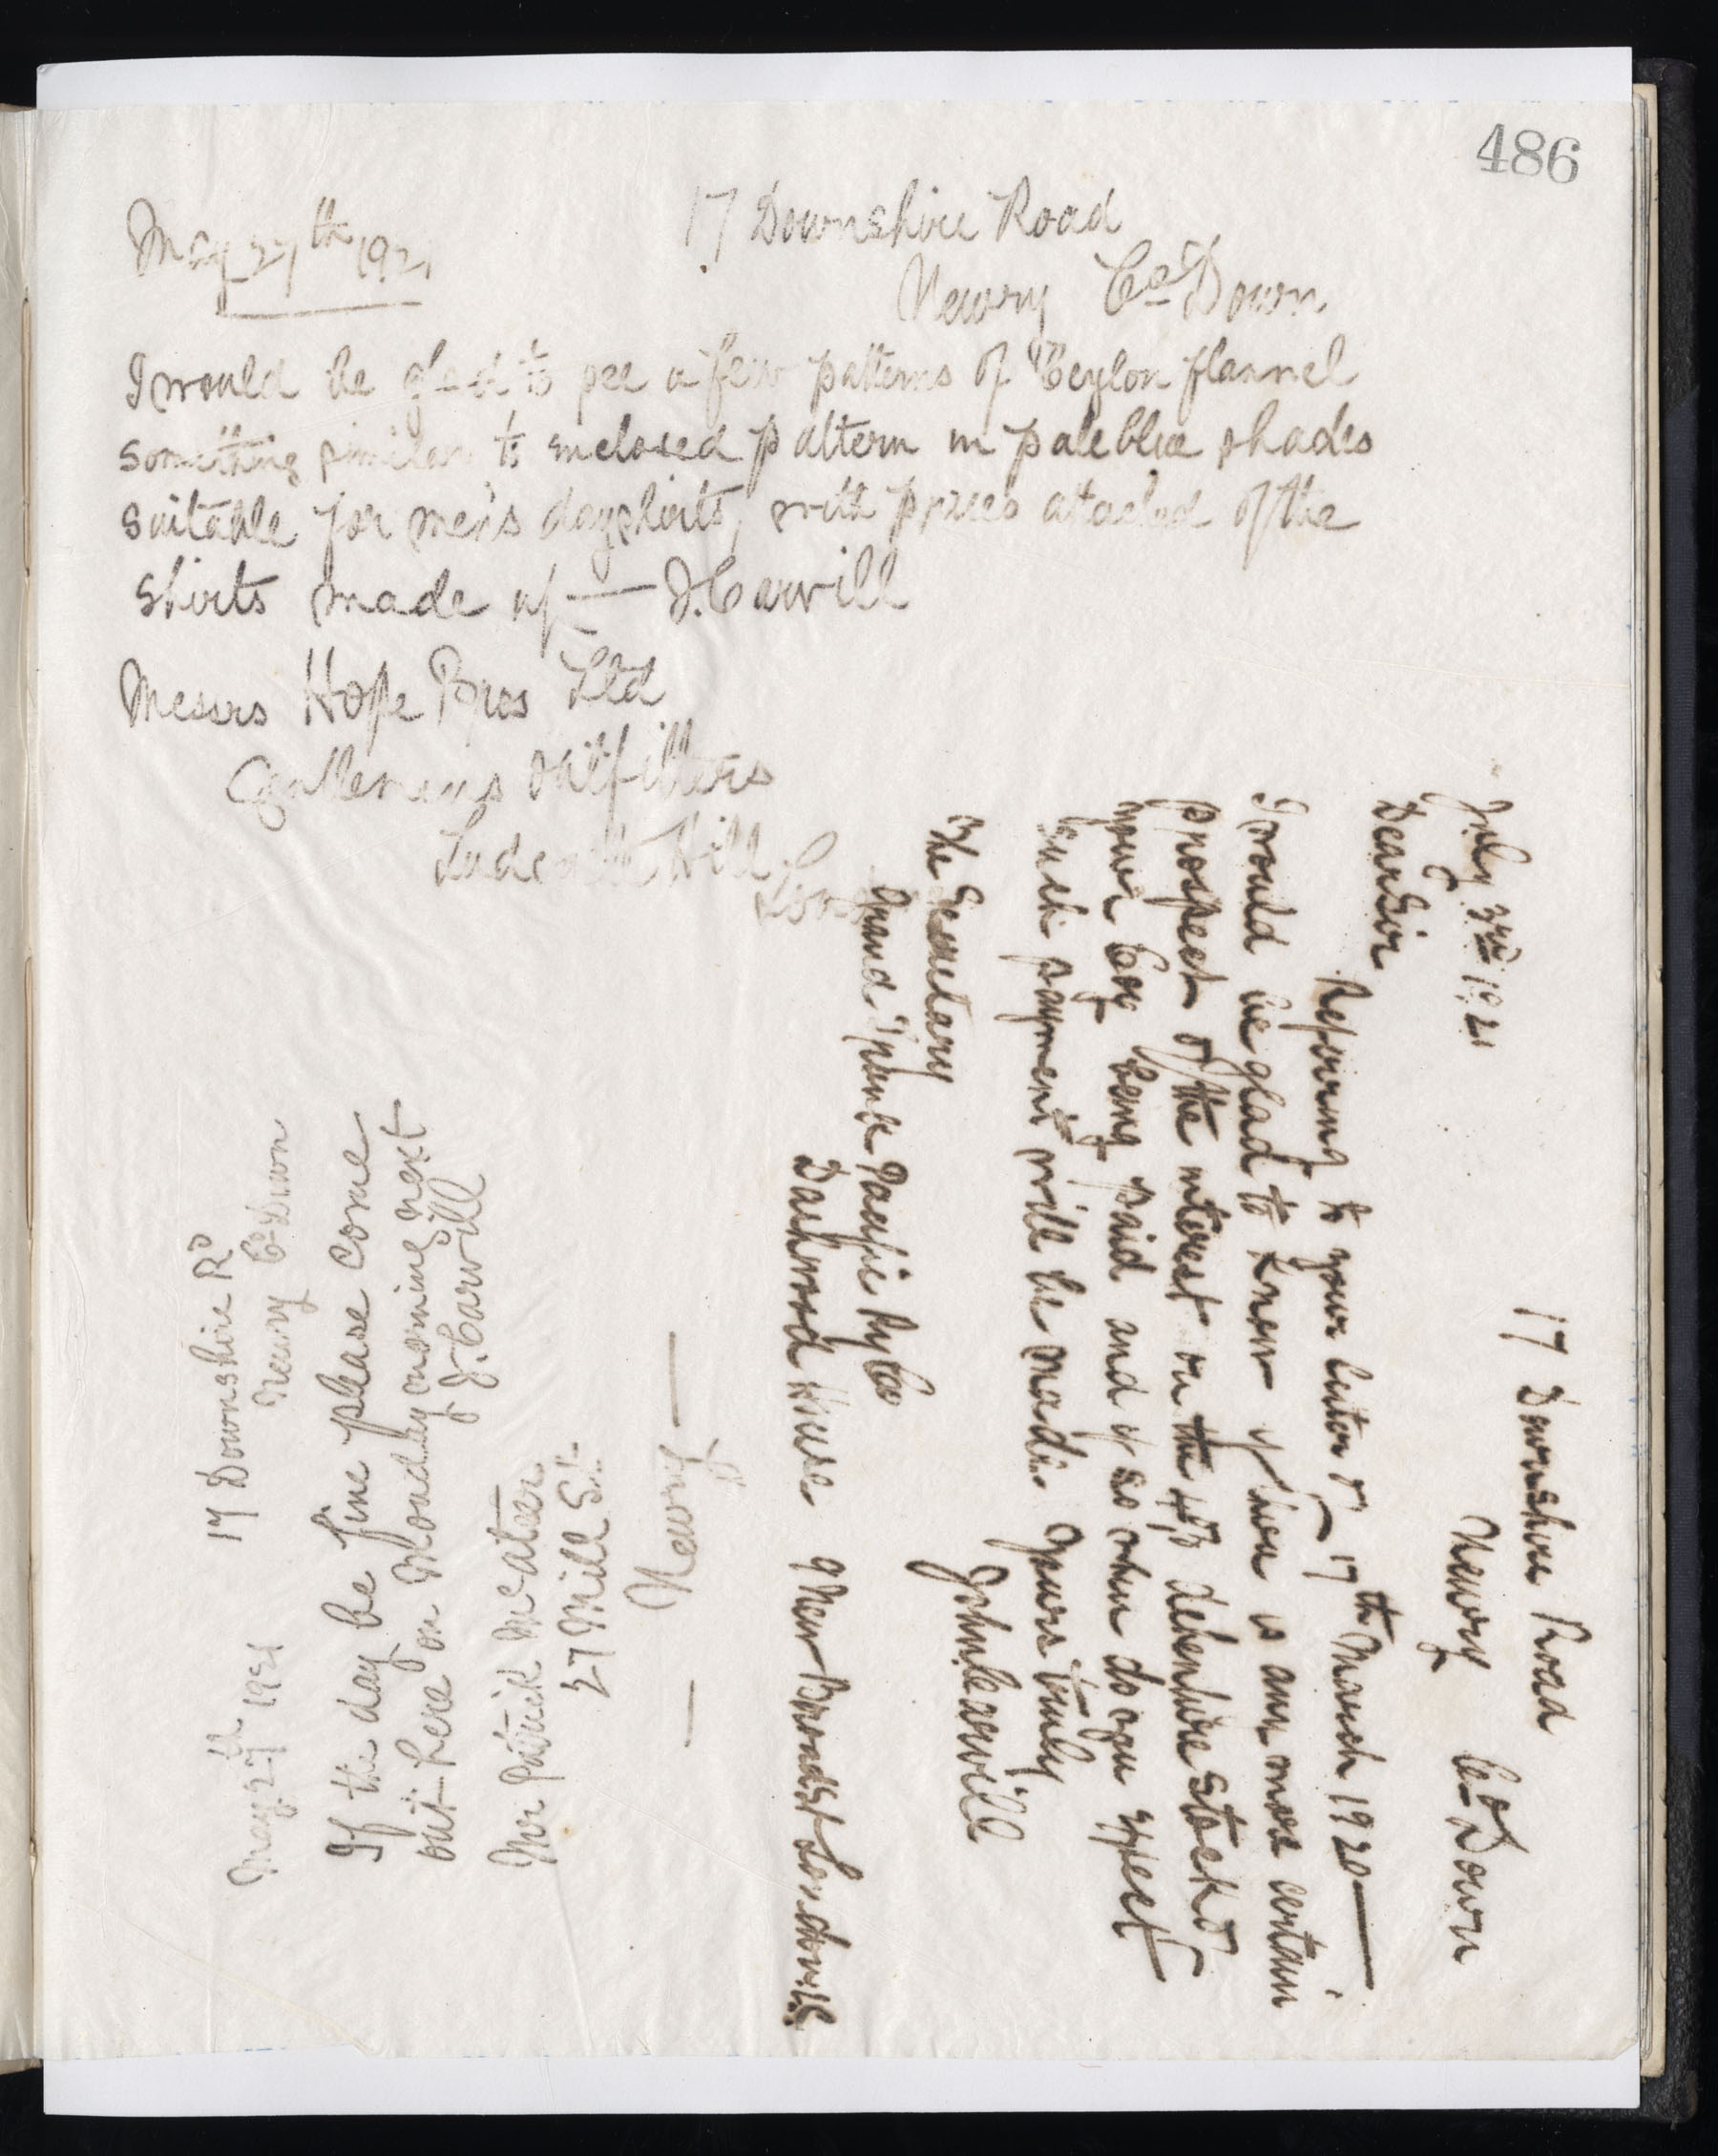 486
17 Downshire Road
May 27th 1921
Newry Co Down
I would be glad to see a few patterns of Ceylon flannel
something similar to enclosed pattern in pale blue shades
suitable for men's dayshirts, with prices attached of the
shirts made up — J. Carvill
Messrs Hope Bros Ltd
Gentlemens Outfitters
Ludgate Hill
17 Downshire Road
July 3rd 1921
Newry Co Down
Dear Sir
Refering to your letter of 17th March 1920 —
I would be glad to know if there is any more certain
prospect of the interest on the 4% debenture stock of
your Coy being paid and if so when do you expect
such payment will be made. Yours truly
John Carvill
The Secretary
Grand Trunk Pacific Ry Co
Dashwood House 9 New Broad St London
May 27th 1921 17 Downshire Rd
Newry Co Down
If the day be fine please come
out here on Monday morning next
J. Carvill
Mr Patrick McAteer
27 Mill St.
— Newry —